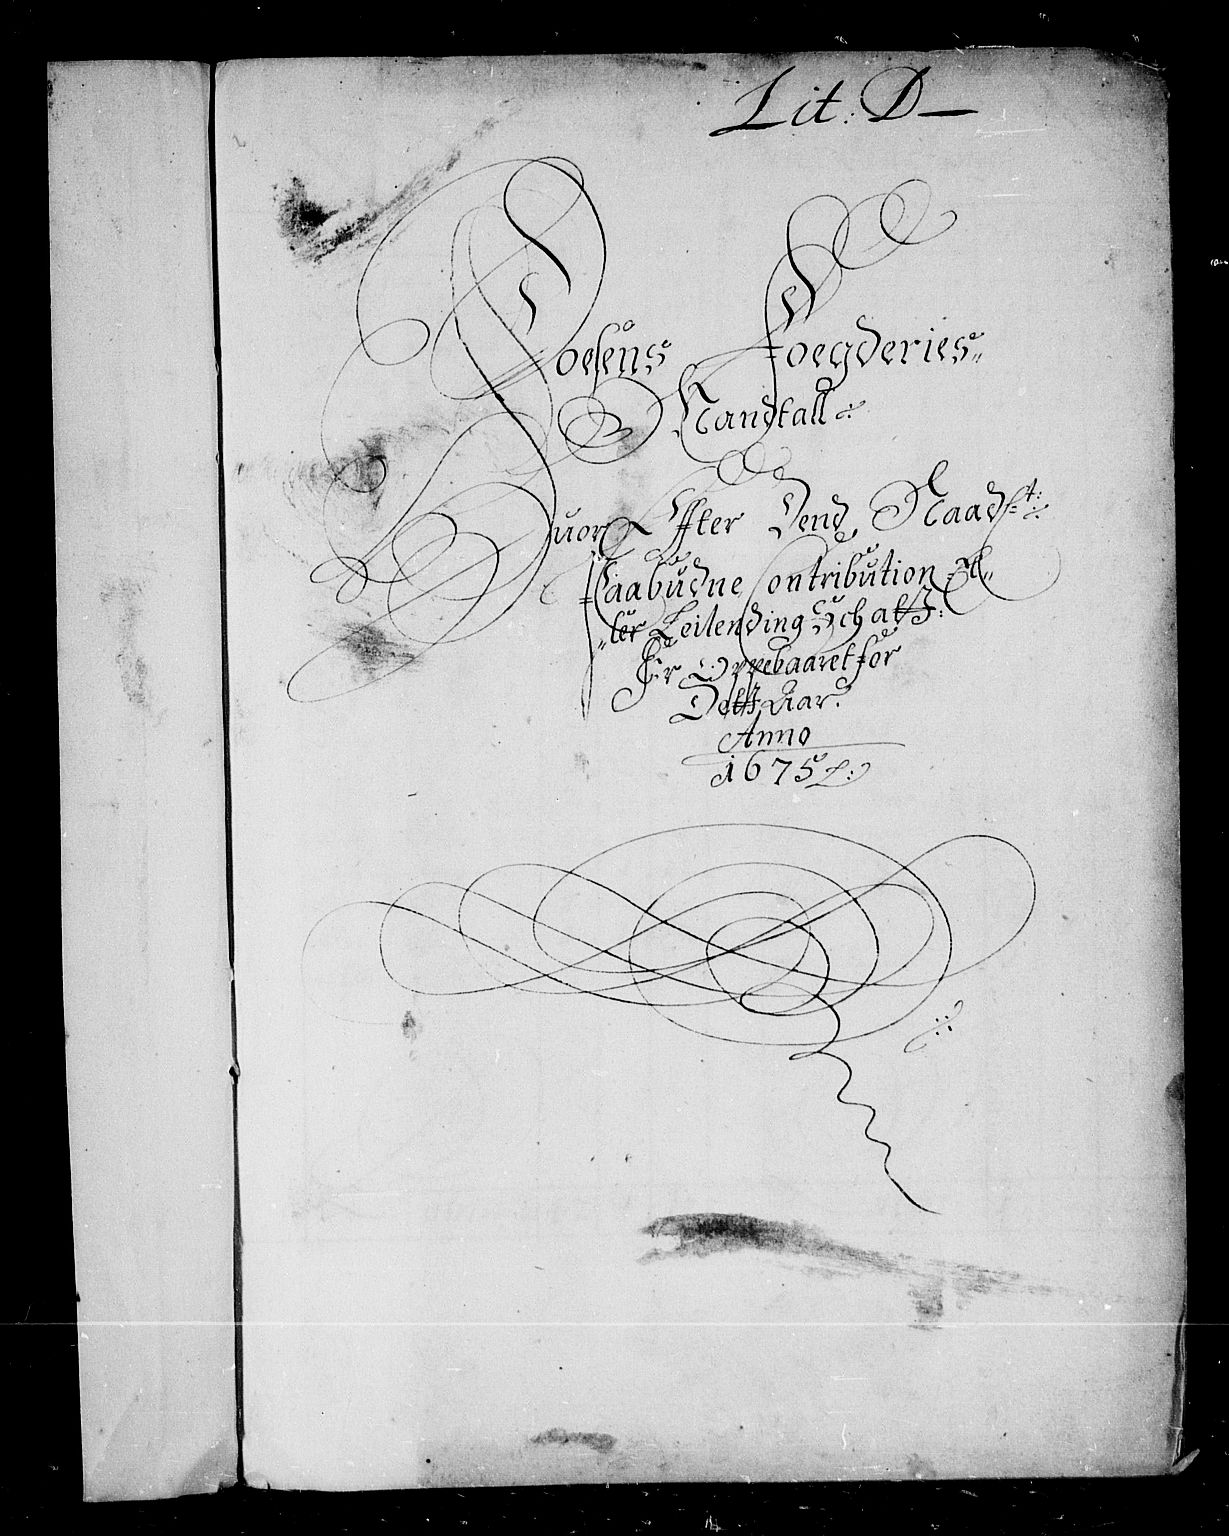 Lit: D
Foesens Foegderies
Mandtall
Huor Effter Dend Naad:st:
Paabudne Contribution El-
ler Leilending Schatt
Er Oppebaaret for
Dette Aar
Anno
1675